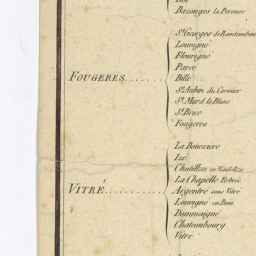 Bazouges la Perouse
St Georges de Reintembault
Louvigné
Fleurigné
Parcé
FOUGERES
Billé
St Aubin du Cormier
St Mard le Blanc
St Brice
Fougeres
La Bouexiere
Izé
Chatillon en Vendelais
La Chapelle Erbrée
VITRÉ
Argentré sous Vitré
Louvigné en Bais
Dommaigné
Chateaubourg
Vitré